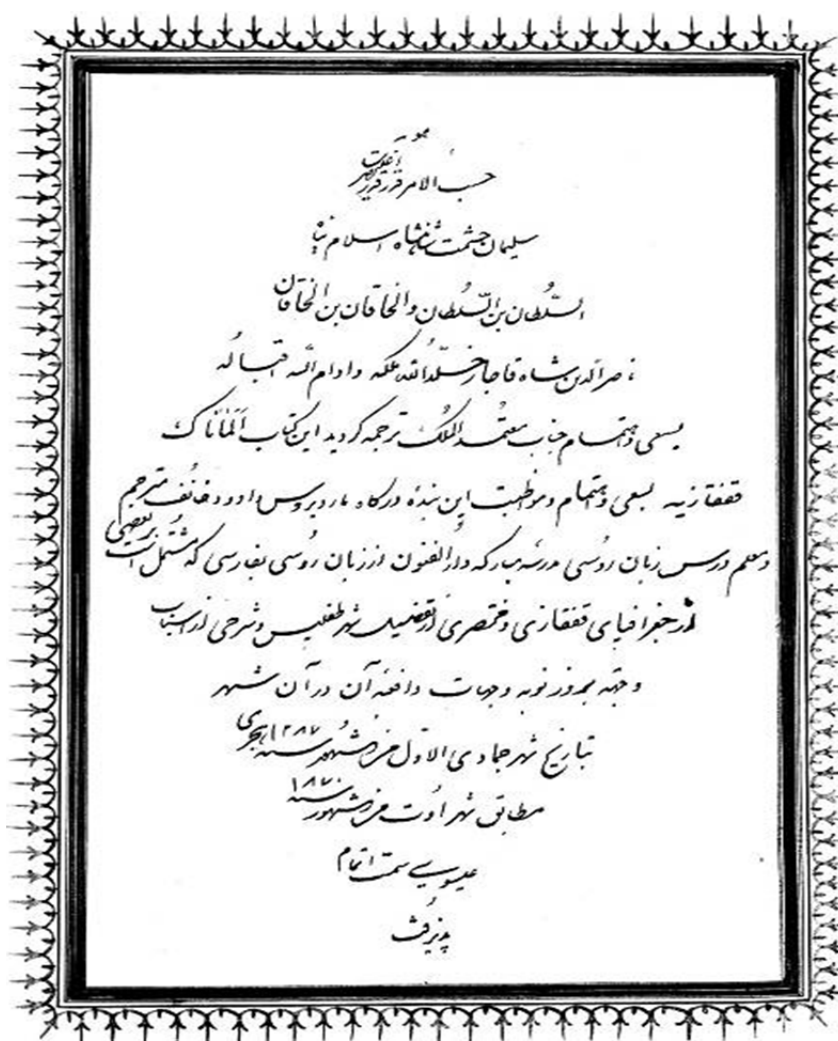 هو
حسب الامر قدر قدرت
سلیمان حشمت شاهنشاه اسلام پناه
السُّلطان بن السّلطان والخاقان بن الخاقان
ناصرالدین شاه قاجار خلّد الله ملکه و ادام الله اقباله
بسعی و اهتمام جناب معتمد الملک ترجمه گردید این کتاب اَلمَاناک
قفقازیه بسعی و اهتمام و مواظبت این بندهٔ درگاه ماردیروس داود خانُف مترجم
و معلم درس زبان روُسی مدرسه مبارکه دارُالفنون از زبان روُسی بفارسی که مُشتمل است بر بعضی
از جغرافیای قفقازی و مختصری از تفضیل شهر تفلیس و شرحی از اسباب
و جهة بروز نوبه و جهات دافعه آن در آن شهر
بتاریخ شهر جمادی الاوّل من شهُور سنه ۱۲۸۷ هجری
مطابق شهر اوُت من شهور سنه ۱۸۷۰
عیسوی سمت اتمام
پذیرفت